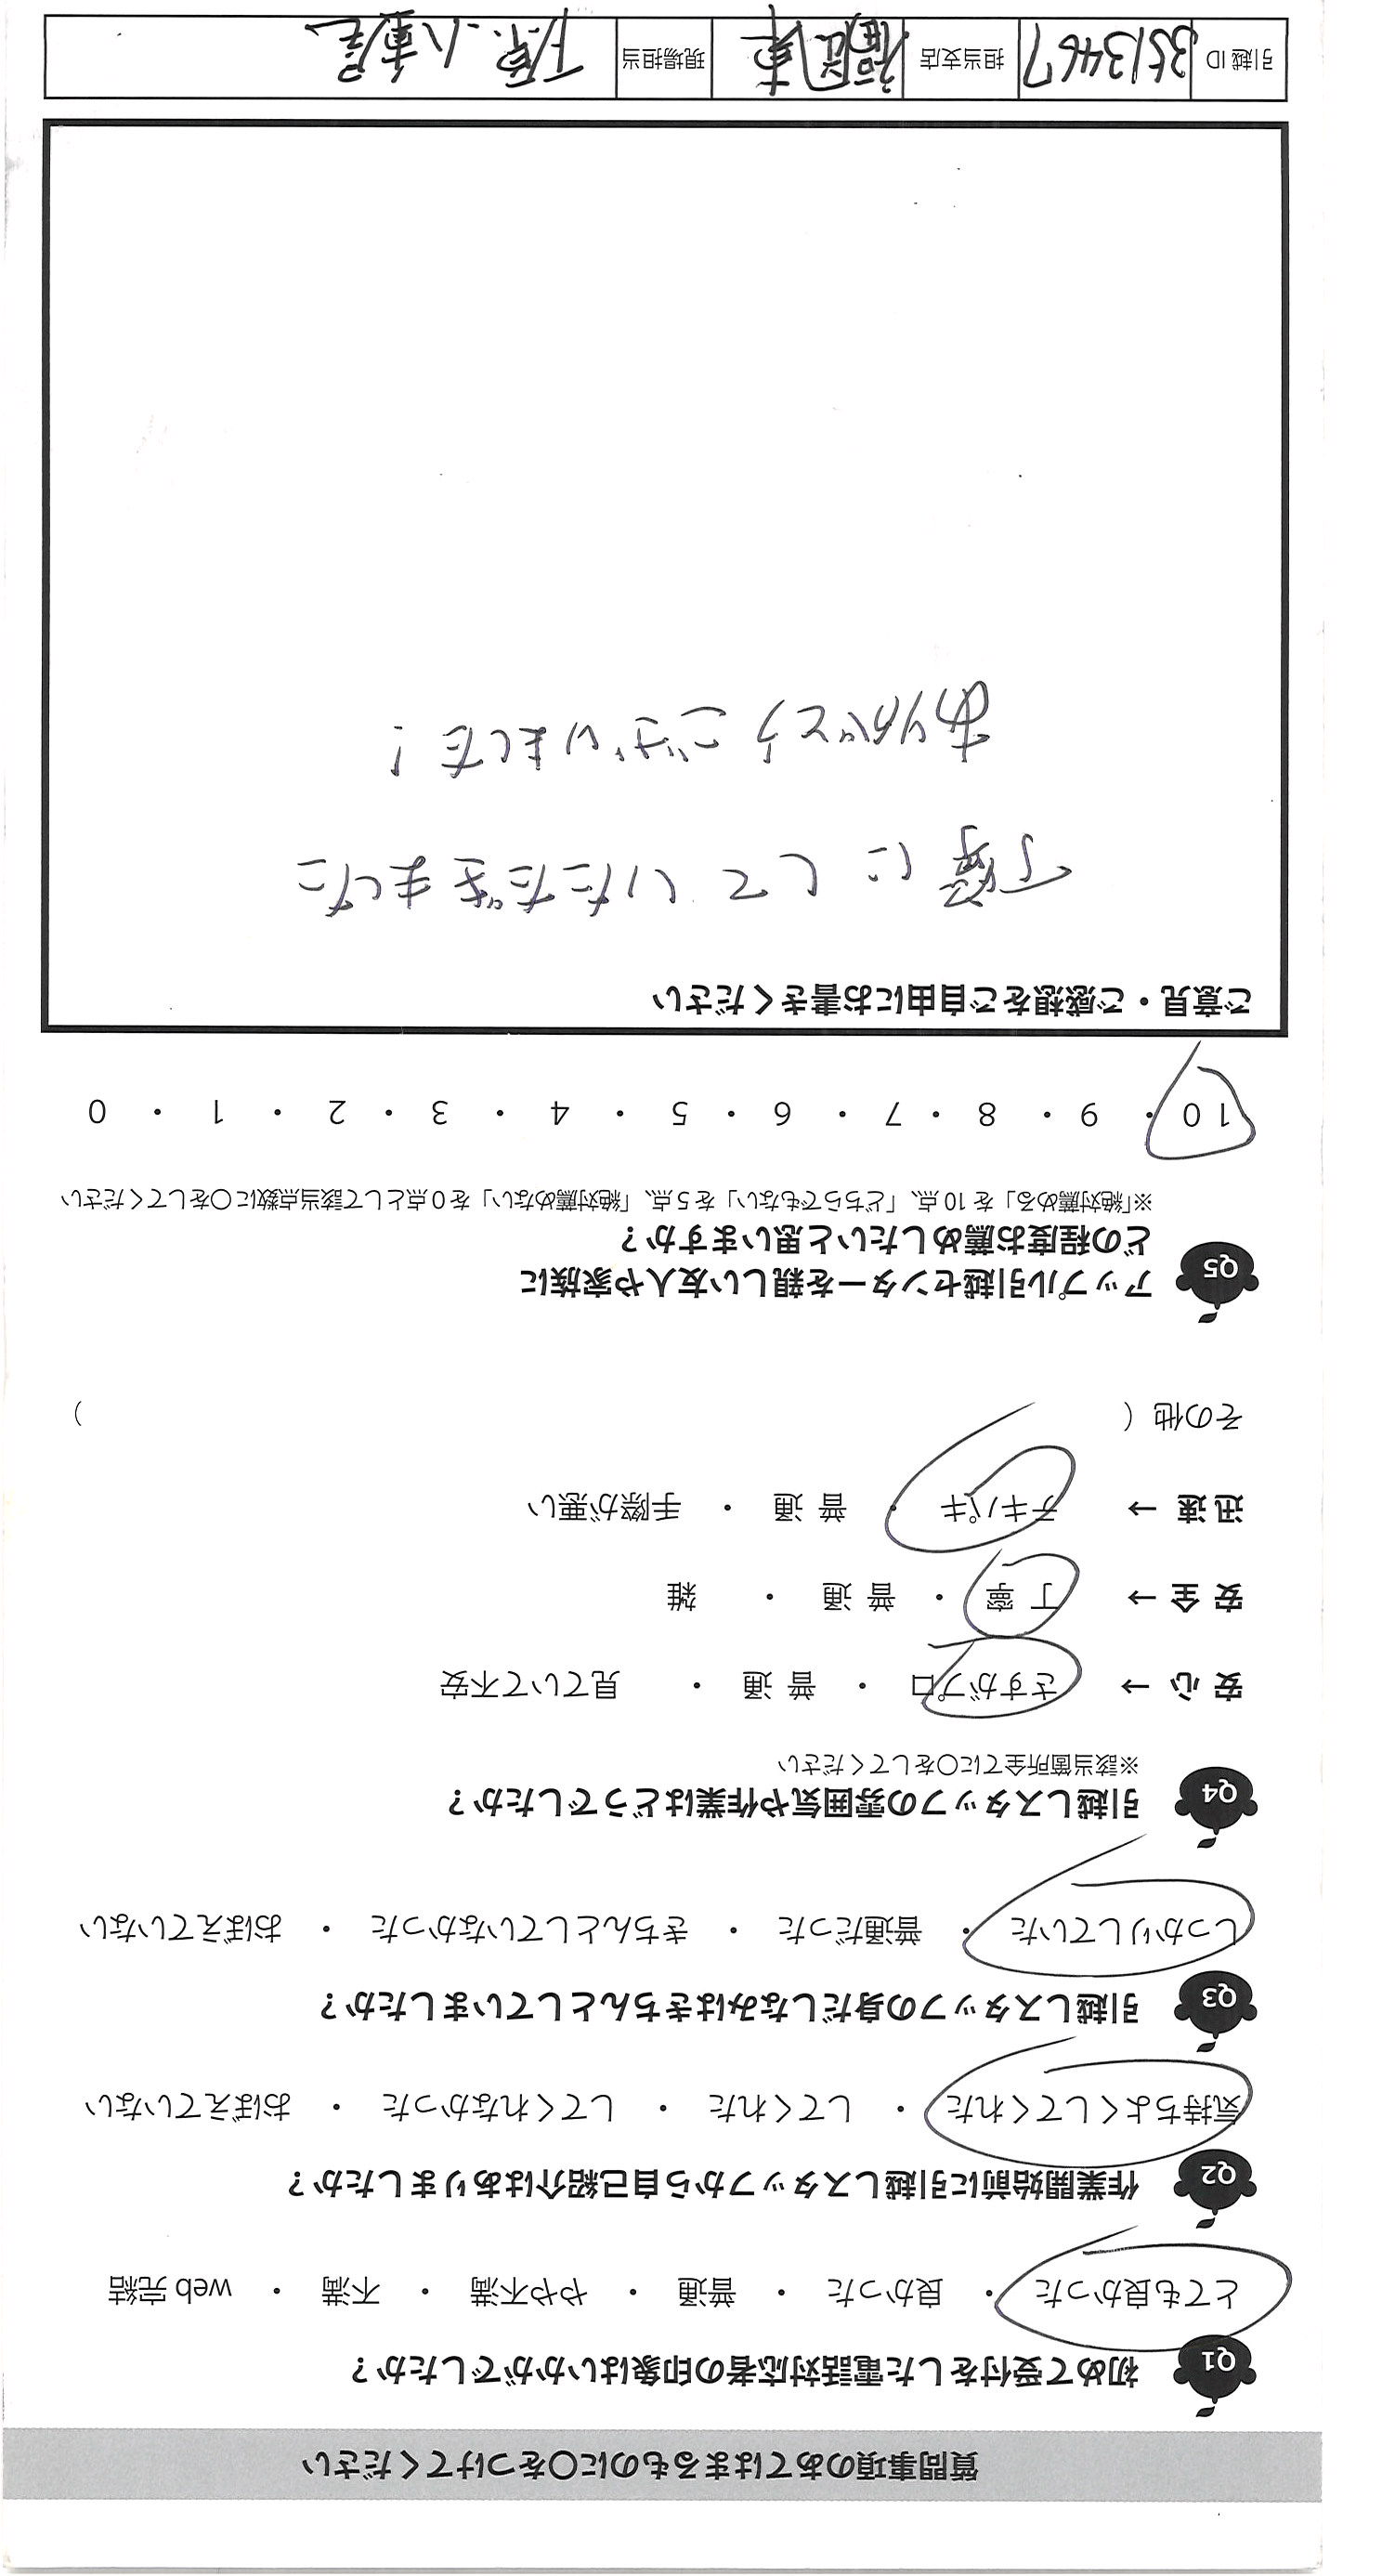 質問事項のあてはまるものに〇をつけてください
Q1 初めて受付をした電話対応者の印象はいかがでしたか？
とても良かった ・ 良かった ・ 普通 ・ やや不満 ・ 不満 ・ web 完結
Q2 作業開始前に引越しスタッフから自己紹介はありましたか？
気持ちよくしてくれた ・ してくれた ・ してくれなかった ・ おぼえていない
Q3 引越しスタッフの身だしなみはきちんとしていましたか？
しっかりしていた ・ 普通だった ・ きちんとしていなかった ・ おぼえていない
Q4 引越しスタッフの雰囲気や作業はどうでしたか？
※該当箇所全てに〇をしてください
安心 → さすがプロ ・ 普通 ・ 見ていて不安
安全 → 丁寧 ・ 普通 ・ 雑
迅速 → テキパキ ・ 普通 ・ 手際が悪い
その他（ ）
Q5 アップル引越センターを親しい友人や家族に
どの程度お薦めしたいと思いますか？
※「絶対薦める」を 10 点、「どちらでもない」を 5 点、「絶対薦めない」を 0 点として該当点数に〇をしてください
10 ・ 9 ・ 8 ・ 7 ・ 6 ・ 5 ・ 4 ・ 3 ・ 2 ・ 1 ・ 0
ご意見・ご感想をご自由にお書きください
丁寧に していただきました
ありがとうございました！
引越 ID 3513467 担当支店 福岡東 現場担当 下原、八重尾